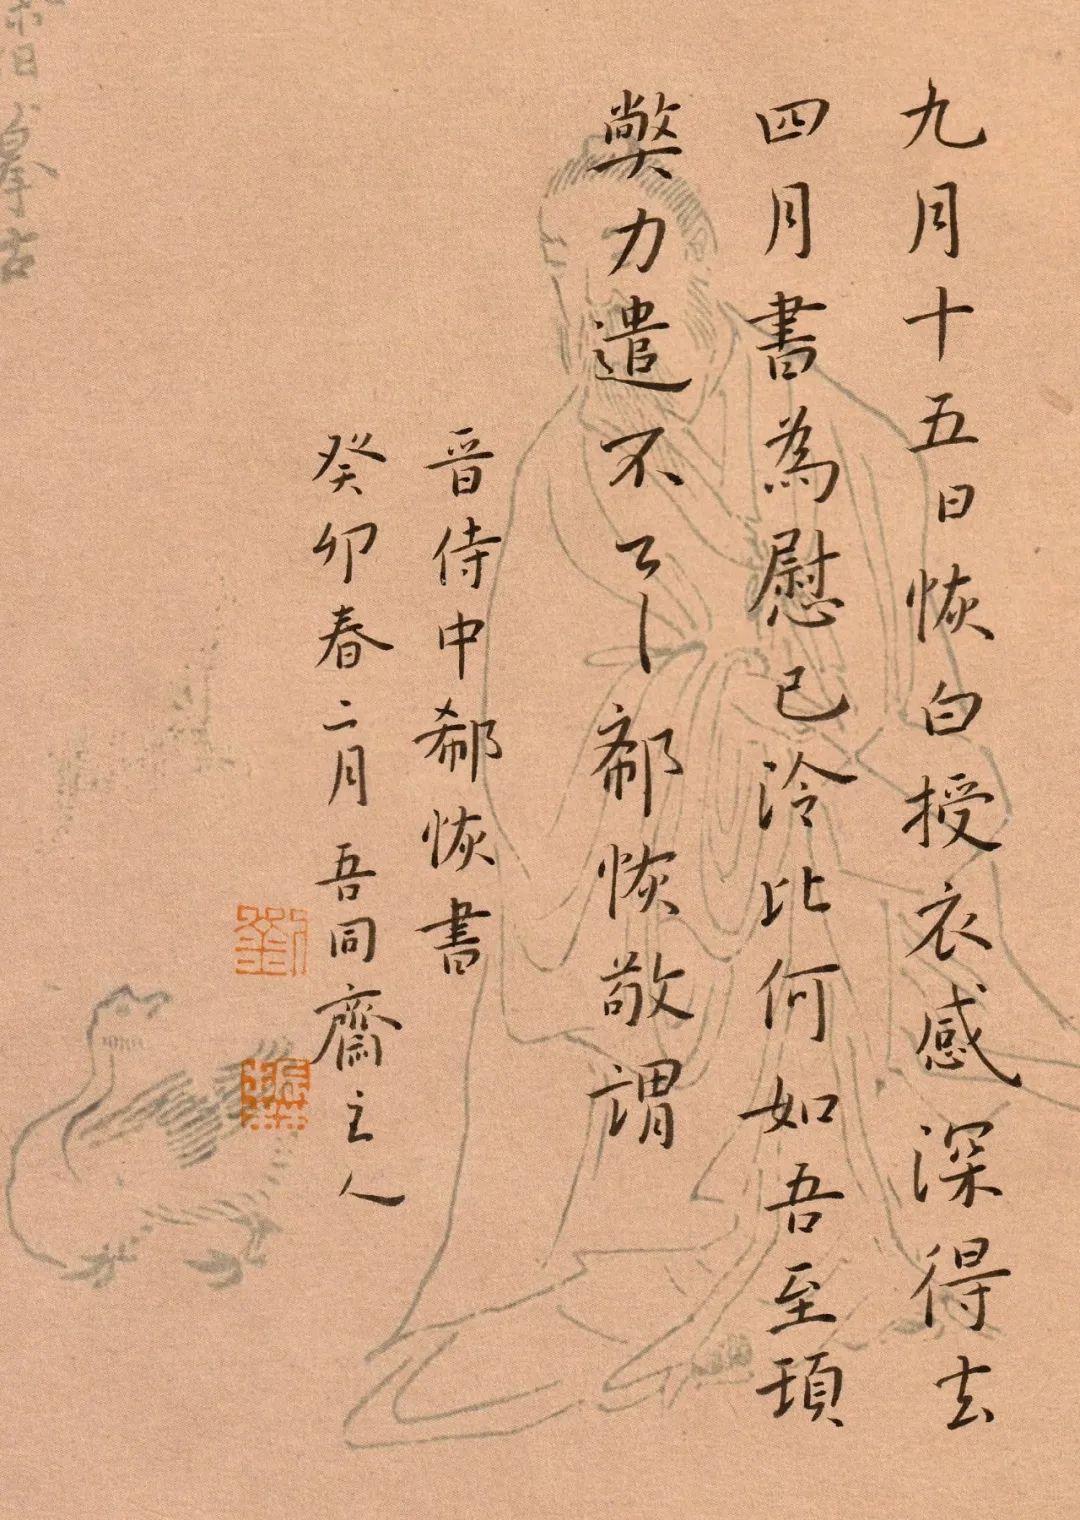 九月十五日恢白授衣感深得去
四月書為慰已泠比何如吾至頓
弊力遣不 郗恢敬謂
晋侍中郗恢書
癸卯春二月吾同齋主人
劉